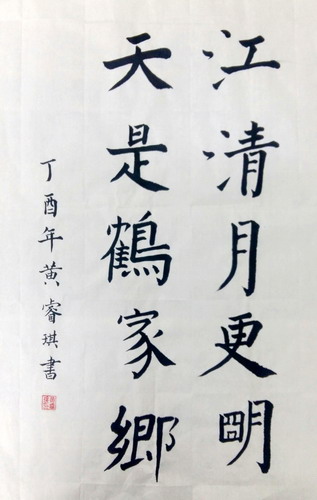 江清月更明
天是鶴家鄉
丁酉年黄睿琪書